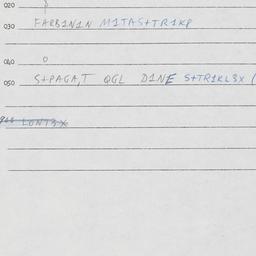 020
030 FARB1N1N M1TAS+TR1KP
040 O
050 S+PAGA,T QGL D1NE S+TR1KL3X (
LONT3X